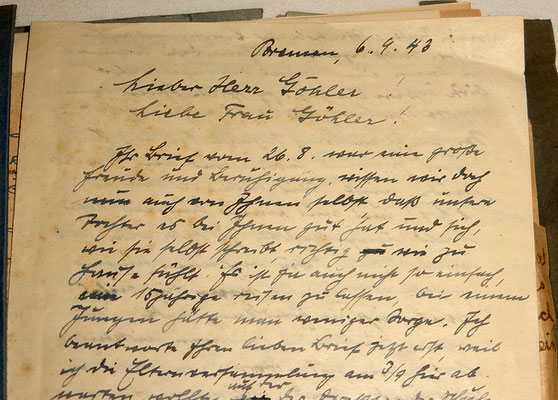 Bremen, 6.9.43
Lieber Herr Göhler!
Liebe Frau Göhler!
Ihr Brief vom 26.8. war eine große
Freude und Beruhigung, wissen wir doch
nun auch von Ihnen selbst, daß unsere
Tochter es bei Ihnen gut hat und sich,
wie sie selbst schreibt richtig zu wie zu
Hause fühlt. Es ist ja auch nicht so einfach,
15jährige reisen zu lassen, bei einem
Jungen hätte man weniger Sorge. Ich
beantworte Ihren lieben Brief jetzt erst, weil
ich die Elternversammlung am 3/9 hier ab
warten wollte, auf der